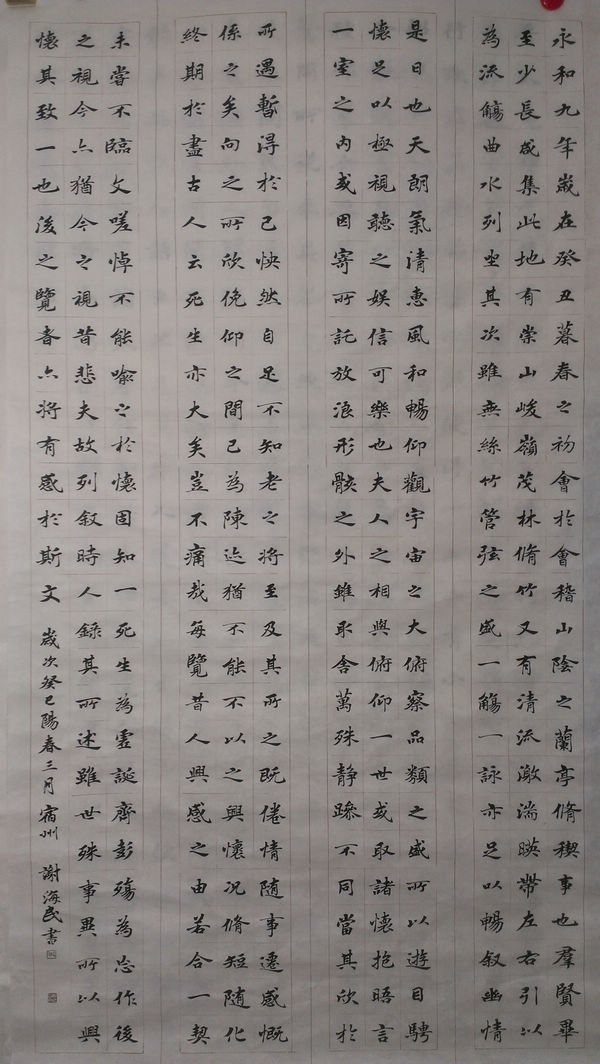 永和九年歲在癸丑暮春之初會於會稽山陰之蘭亭脩稧事也羣賢畢
至少長咸集此地有崇山峻嶺茂林脩竹又有清流激湍暎帶左右引以
為流觴曲水列坐其次雖無絲竹管弦之盛一觴一詠亦足以暢叙幽情
是日也天朗氣清惠風和暢仰觀宇宙之大俯察品類之盛所以遊目騁
懷足以極視聽之娱信可樂也夫人之相與俯仰一世或取諸懷抱晤言
一室之内或因寄所託放浪形骸之外雖取舍萬殊静躁不同當其欣於
所遇暫得於己怏然自足不知老之將至及其所之既倦情随事遷感慨
係之矣向之所欣俛仰之間已為陳迹猶不能不以之興懷况脩短随化
終期於盡古人云死生亦大矣豈不痛哉每覽昔人興感之由若合一契
未嘗不臨文嗟悼不能喻之於懷固知一死生為虛誕齊彭殤為忘作後
之視今亦猶今之視昔悲夫故列叙時人錄其所述雖世殊事異所以興
懷其致一也後之覽者亦將有感於斯文 歲次癸巳陽春三月宿州 謝海民書